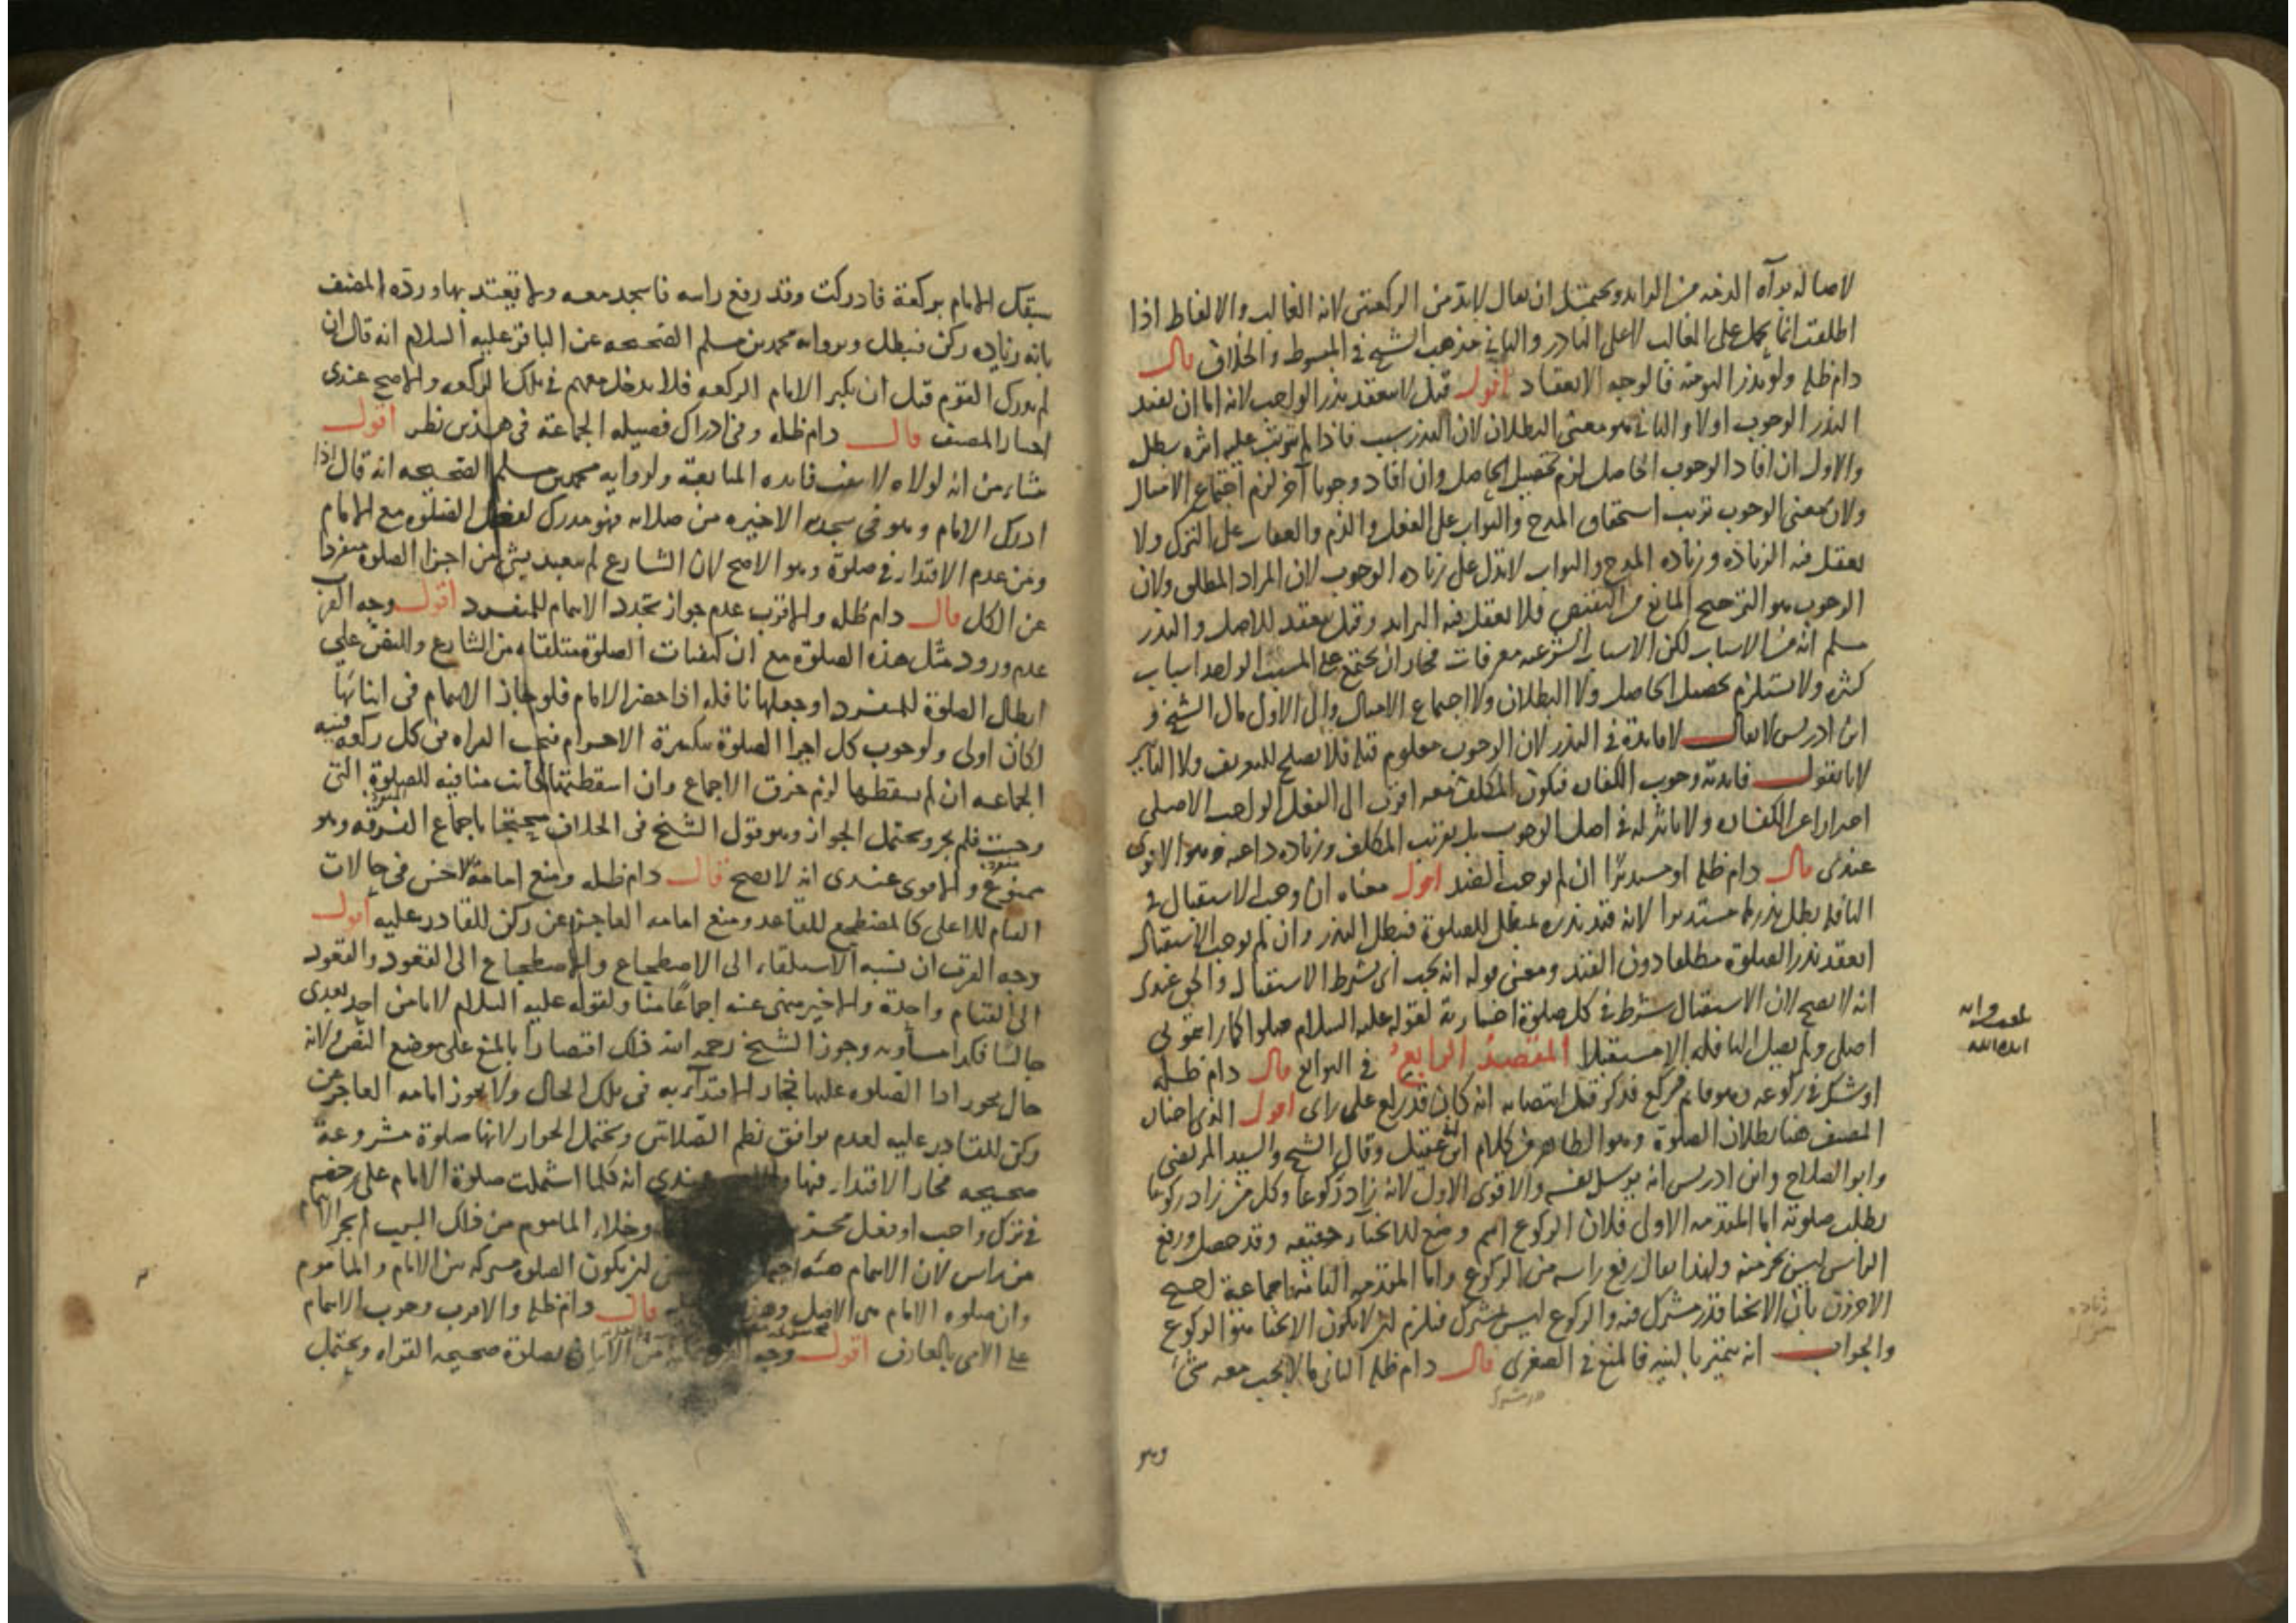 لاصالة براءة الذمه من الزايد ويحتمل ان يقال لابد من الركعتين لانه الغالب والالفاظ اذا
اطلقت انما يحمل على الغالب لا على النادر والثاني مذهب الشيخ في المبسوط والخلاف قال
دام ظله ولو نذر اليوميه فالوجه الانعقاد اقول قيل لا ينعقد نذر الواجب لانه اما ان يفيد
النذر الوجوب اولا والثاني هو معنى البطلان لان النذر سبب فاذا لم يترتب عليه اثره بطل
والاول ان افاد الوجوب الحاصل لزم تحصيل الحاصل وان افاد وجوبا آخر لزم اجتماع الامثال
ولان معنى الوجوب ترتب استحقاق المدح والثواب على الفعل والذم والعقاب على الترك ولا
يعقل فيه الزيادة وزياده المدح والثواب لا تدل على زياده الوجوب لان المراد المطلق ولان
الوجوب هو الترجيح المانع من النقيض فلا يعقل فيه الزايد وقيل ينعقد للاصل والنذر
مسلم انه من الاسباب لكن الاسباب الشرعيه معرفات فجاز ان يجتمع على المسبب الواحد اسباب
كثيره ولا يستلزم تحصيل الحاصل ولا البطلان ولا اجتماع الامثال والى الاول مال الشيخ و
ابن ادريس لا يقال لا فايدة في النذر لان الوجوب معلوم قبله فلا يصلح للتعريف ولا التاكيد
لانا نقول فايدته وجوب الكفاره فيكون المكلف معه اقرب الى الفعل الواجب الاصلي
احترازا عن الكفاره ولا تاثير له في اصل الوجوب بل يقرب المكلف وزياده داعيه وهو الاقوى
عندى قال دام ظله او مستدبرا ان لم يوجب الضد اقول معناه ان وجب الاستقبال في
النافله بطل نذرها مستدبرا لانه قيد نذره بمبطل للصلوة فيبطل النذر وان لم يوجب الاستقبال
انعقد نذر الصلوة مطلقا دون القيد ومعنى قوله انه يجب اى يشرط الاستقبال والحق عندى
انه لا يصح لان الاستقبال شرط في كل صلوة اختيارية لقوله عليه السلام صلوا كما رايتموني
اصلي ولم يصل النافله الا مستقبلا المقصد الرابع في التوابع قال دام ظله
او شك في ركوعه وهو قايم فركع فذكر قبل انتصابه انه كان قد ركع على راى اقول الذي اختاره
المصنف هنا بطلان الصلوة وهو الظاهر من كلام ابن عقيل وقال الشيخ والسيد المرتضى
وابو الصلاح وابن ادريس انه يرسل نفسه والاقوى الاول لانه زاد ركوعا وكل من زاد ركوعا
بطلت صلوته اما المقدمه الاولى فلان الركوع اسم وضع للانحناء حقيقه وقد حصل ورفع
الراس ليس بجزء منه ولهذا يقال رفع راسه من الركوع واما المقدمه الثانيه
الاخرون بان الانحنا قدر مشترك فيه والركوع ليس بمشترك فيلزم ان لا يكون الانحنا هو الركوع
والجواب انه يتميز بالنيه فالمنع في الصغرى قال دام ظله الثاني ما لا يجب معه شئ
وهو
سبقك الامام بركعة فادركت وقد رفع راسه فاسجد معه ولا تعتد بها ورده المصنف
بانه زياده ركن فيبطل وبروايه محمد بن مسلم الصحيحه عن الباقر عليه السلام انه قال ان
لم تدرك القوم قبل ان يكبر الامام الركعه فلا تدخل معهم في تلك الركعه والاصح عندى
اختيار المصنف قال دام ظله وفي ادراك فضيله الجماعة في هذين نظر اقول
ينشاء من انه لولاه لانتفت فايده المتابعة ولروايه محمد بن مسلم الصحيحه انه قال اذا
ادرك الامام وهو في سجده الاخيره من صلاته فهو مدرك لفضل الصلوة مع الامام
ومن عدم الاقتداء في صلوة وهو الاصح لان الشارع لم يعتد بشئ من اجزا الصلوة منفردا
عن الكل قال دام ظله والاقرب عدم جواز تجدد الايتمام للمنفرد اقول وجه القرب
عدم ورود مثل هذه الصلوة مع ان كيفيات الصلوة متلقاه من الشارع والنص على
ابطال الصلوة للمنفرد او جعلها نافله اذا حضر الامام فلو جاز الايتمام في اثنائها
لكان اولى ولوجوب كل اجزا الصلوة بتكبيرة الاحرام فتجب القراه في كل ركعه ففيه
الجماعه ان لم يسقطها لزم خرق الاجماع وان اسقطتها كانت منافيه للصلوة التي
وجبت فلم يجز ويحتمل الجواز وهو قول الشيخ في الخلاف محتجا باجماع الفرقه وهو
ممنوع والاقوى عندى انه لا يصح قال دام ظله ومنع امامة الاخس في حالات
القيام للاعلى كالمضطجع للقاعد ومنع امامه العاجز عن ركن للقادر عليه اقول
وجه القرب ان نسبه الاستلقاء الى الاضطجاع والاضطجاع الى القعود والقعود
الى القيام واحدة والاخير منهى عنه اجماعا منا ولقوله عليه السلام لا يامن احد بعدى
جالسا فكذا مساويه وجوز الشيخ رحمه الله ذلك اقتصارا بالمنع على موضع النص ولانه
حال يجوز ادا الصلوه عليها فجاز الاقتداء به في تلك الحال ولا يجوز امامه العاجز عن
ركن للقادر عليه لعدم توافق نظم الصلاتين ويحتمل الجواز لانها صلوة مشروعة
صحيحه فجاز الاقتداء فيها عندى انه كلما اشتملت صلوة الامام على رخصه
في ترك واجب او فعل وخلاء الماموم من ذلك السبب لم يجز الايتمام
من راس لان الايتمام هيئه ان يكون الصلوه مشتركه بين الامام والماموم
وان صلوه الامام هي الاصل قال دام ظله والاقرب وجوب الايتمام
على الامى بالعارف اقول وجه من الاتيان بصلوة صحيحه القراه ويحتمل